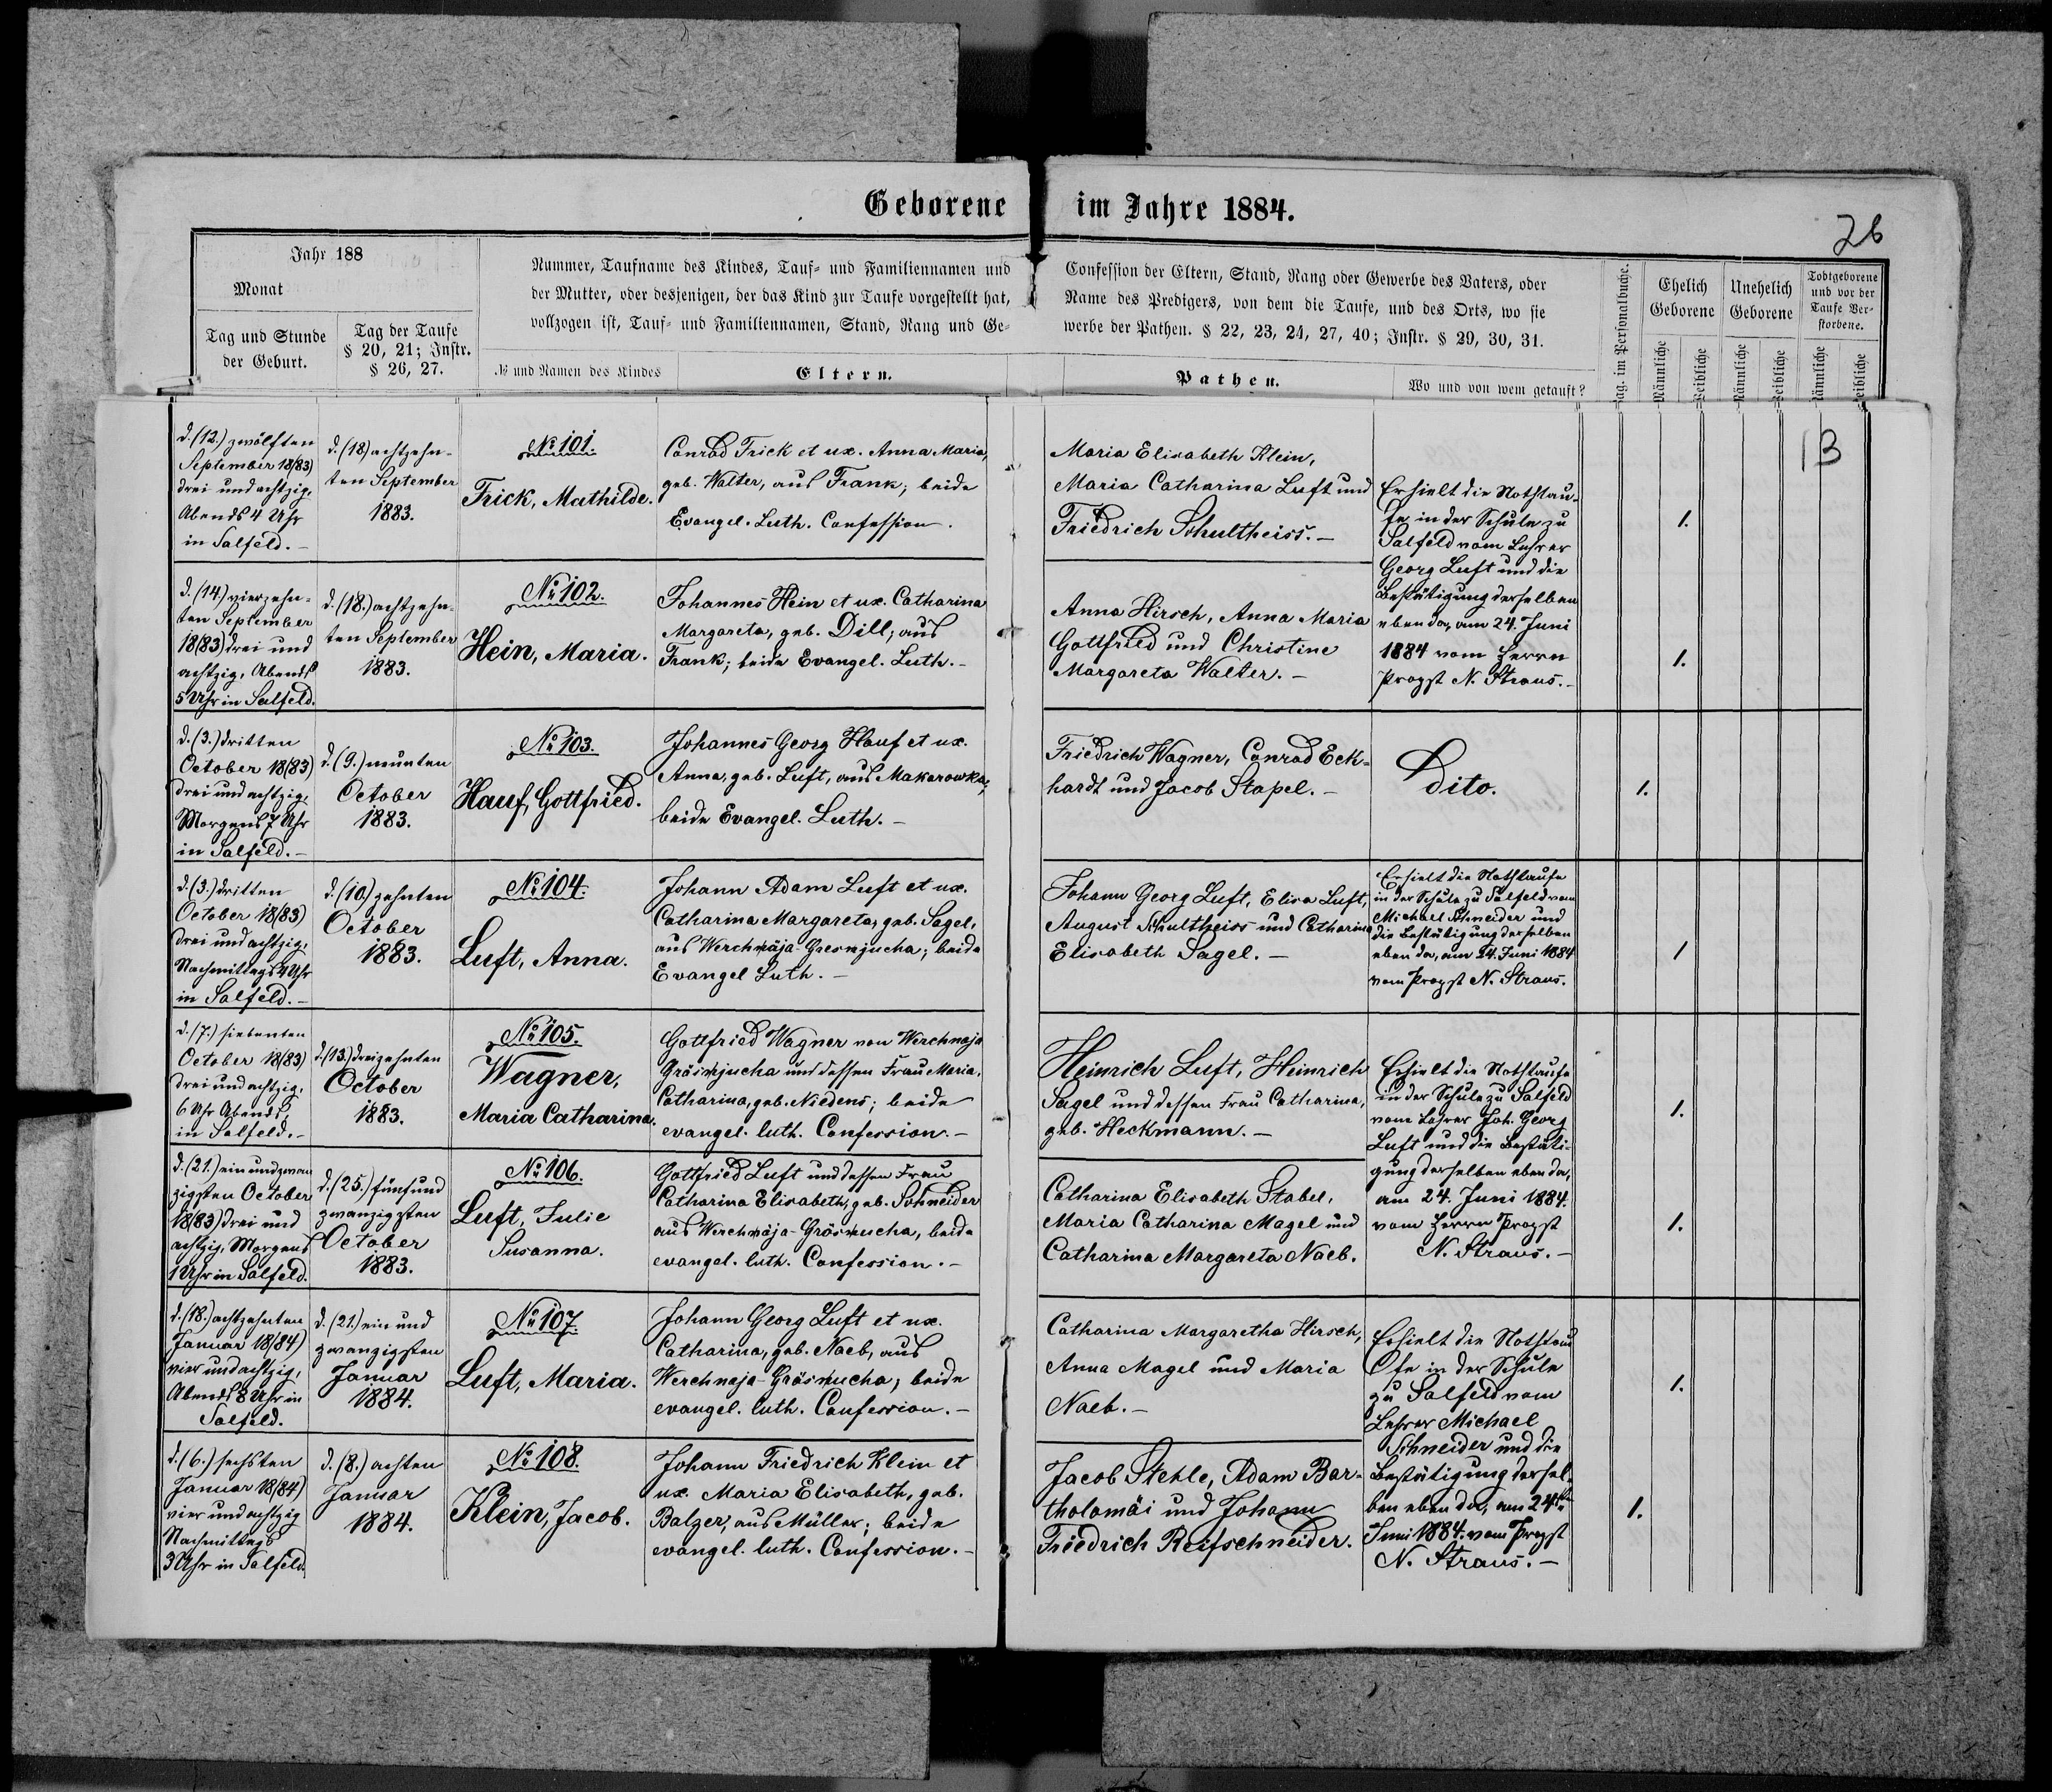 Geborene im Jahre 1884.
26
Jahr 188
Monat
Tag und Stunde
der Geburt.
Tag der Taufe
§ 20, 21; Instr.
§ 26, 27.
Nummer, Taufname des Kindes, Tauf- und Familiennamen und
der Mutter, oder desjenigen, der das Kind zur Taufe vorgestellt hat,
vollzogen ist, Tauf- und Familiennamen, Stand, Rang und Ge-
№ und Namen des Kindes
Eltern.
Confession der Eltern, Stand, Rang oder Gewerbe des Vaters, oder
Name des Predigers, von dem die Taufe, und des Orts, wo sie
werbe der Pathen. § 22, 23, 24, 27, 40; Instr. § 29, 30, 31.
Pathen.
Wo und von wem getauft?
Pag. im Personalbuche.
Ehelich
Geborene
Unehelich
Geborene
Todtgeborene
und vor der
Taufe Ver-
storbene.
Männliche
Weibliche
Männliche
Weibliche
Männliche
Weibliche
13
d. (12.) zwölften
September 18(83)
drei und achtzig,
Abends 4 Uhr
in Salfeld.-
d. (18) achtzehn-
ten September
1883.
No 101.
Frick, Mathilde.
Conrad Frick et ux. Anna Maria,
geb. Walter, aus Frank; beide
Evangel. Luth. Confession.
Maria Elisabeth Klein,
Maria Catharina Luft und
Friedrich Schultheiss.-
Erhielt die Nothtau-
fe in der Schule zu
Salfeld vom Lehrer
Georg Luft und die
Bestätigung derselben
eben da, am 24. Juni
1884 vom Herrn
Propst N. Straus.-
1.
d. (14.) vierzehn-
ten September
18(83) drei und
achtzig, Abends
5 Uhr in Salfeld.
d. (18.) achtzehn-
ten September
1883.
No 102.
Hein, Maria.
Johannes Hein et ux. Catharina
Margareta, geb. Dill; aus
Frank; beide Evangel. Luth.-
Anna Hirsch, Anna Maria
Gottfried und Christine
Margareta Walter.-
1.
d. (3.) dritten
October 18(83)
drei und achtzig,
Morgens 7 Uhr
in Salfeld.-
d. (9.) neunten
October
1883.
No 103.
Hauf, Gottfried.
Johannes Georg Hauf et ux.
Anna, geb. Luft, aus Makarowka;
beide Evangel. Luth.-
Friedrich Wagner, Conrad Eck-
hardt und Jacob Stapel.-
Dito.
1.
d. (3.) dritten
October 18(83)
drei und achtzig,
Nachmittags 4 Uhr
in Salfeld.-
d. (10.) zehnten
October
1883.
No 104.
Luft, Anna.
Johann Adam Luft et ux.
Catharina Margareta, geb. Sagel,
aus Werchnäja-Gresnjucha; beide
Evangel Luth.-
Johann Georg Luft, Elisa Luft,
August Schultheiss und Catharina
Elisabeth Sagel.-
Erhielt die Nothtaufe
in der Schule zu Salfeld vom
Michael Schneider und
die Bestätigung derselben
eben da, am 24. Juni 1884
vom Propst N. Straus.
1
d. (7.) siebenten
October 18(83)
drei und achtzig,
6 Uhr Abends,
in Salfeld.-
d. (13.) dreizehnten
October
1883.
No 105.
Wagner,
Maria Catharina.
Gottfried Wagner von Werchnaja
Gräsnjucha und dessen Frau Maria,
Catharina, geb. Niedens; beide
evangel. luth. Confession.-
Heinrich Luft, Heinrich
Sagel und dessen Frau Catharina,
geb. Heckmann.-
Erhielt die Nothtaufe
in der Schule zu Salfeld
vom Lehrer Joh. Georg
Luft und die Bestäti-
gung derselben eben da,
am 24. Juni 1884.
vom Herrn Propst
N. Straus.-
1.
d. (21.) ein und zwan
zigsten October
18(83) drei und
achtzig, Morgens
1 Uhr in Salfeld.
d. (25.) fünf und
zwanzigsten
October
1883.
No 106.
Luft, Julie
Susanna.
Gottfried Luft und dessen Frau
Catharina Elisabeth, geb. Schneider
aus Werchnäja-Gräsnucha, beide
evangel. luth. Confession.-
Catharina Elisabeth Stabel,
Maria Catharina Magel und
Catharina Margareta Naeb.
1.
d. (18.) achtzehnten
Januar 18(84)
vier und achtzig,
Abends 8 Uhr in
Salfeld.
d. (21.) ein und
zwanzigsten
Januar
1884.
No 107.
Luft, Maria.
Johann Georg Luft et ux.
Catharina, geb. Naeb, aus
Werchnaja-Gräsnucha; beide
evangel. luth. Confession.-
Catharina Margaretha Hirsch,
Anna Magel und Maria
Naeb.-
Erhielt die Nothtau
fe in der Schule
zu Salfeld vom
Lehrer Michael
Schneider und die
Bestätigung dersel-
ben eben da, am 24ten
Juni 1884. vom Propst
N. Straus.-
1.
d. (6.) sechsten
Januar 18(84)
vier und achtzig
Nachmittags
3 Uhr in Salfeld.
d. (8.) achten
Januar
1884.
No 108.
Klein, Jacob.
Johann Friedrich Klein et
ux. Maria Elisabeth, geb.
Balzer, aus Müller; beide
evangel. luth. Confession.-
Jacob Stehle, Adam Bar-
tholomäi und Johann
Friedrich Reifschneider.
1.